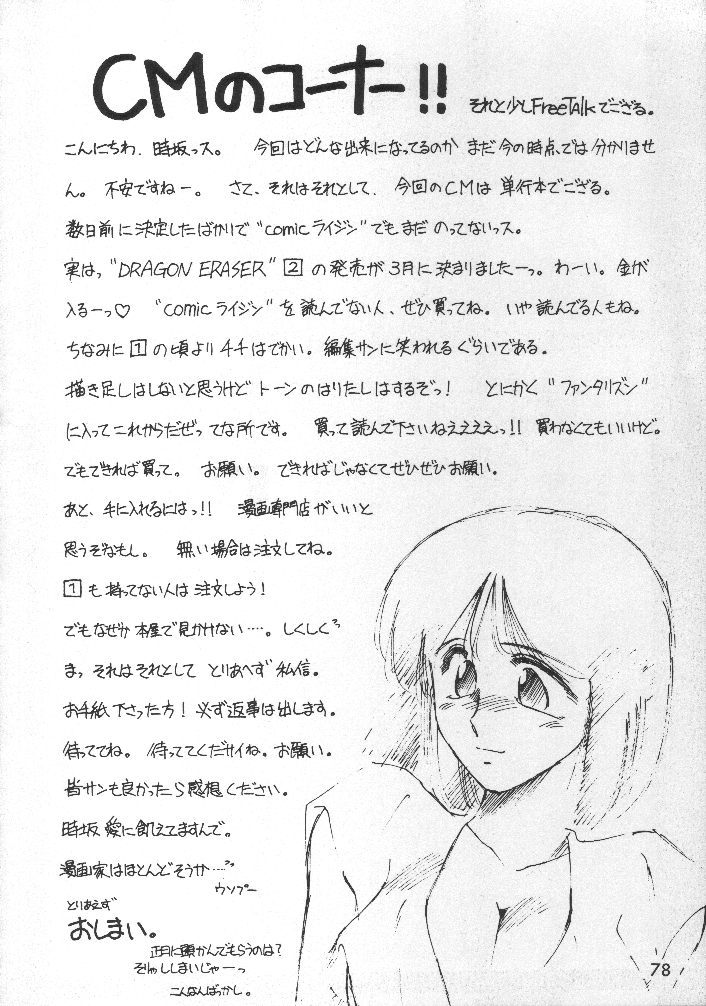 CMのコーナー!!
それと少しFreeTalkでござる。
こんにちわ、時坂っス。 今回はどんな出来になってるのか まだ今の時点では分かりませ
ん。 不安ですねー。 さて、それはそれとして、今回のCMは 単行本でござる。
数日前に決定したばかりで"comicライジン"でもまだ のってないっス。
実はっ"DRAGON ERASER"2 の発売が3月に決まりましたーっ。わーい。金が
入るーっ♡ "comicライジン"を読んでない人、ぜひ買ってね。いや読んでる人もね。
ちなみに1の頃より チチはでかい。編集サンに笑われるぐらいである。
描き足しはしないと思うけど トーンのはりたしはするぞっ! とにかく"ファンタリズン"
に入ってこれからだぜってな所です。 買って読んで下さいねええええっ!! 買わなくてもいいけど。
でもできれば買って。 お願い。 できればじゃなくてぜひぜひお願い。
あと、手に入れるにはっ!! 漫画専門店がいいと
思うぞなもし。 無い場合は注文してね。
1も持ってない人は注文しよう!
でもなぜか本屋で見かけない…。しくしく
まっ それはそれとして とりあへず私信。
お手紙下さった方! 必ず返事は出します。
待っててね。 待っててくだサイね。お願い。
皆サンも良かったら感想ください。
時坂 愛に飢えてますんで。
漫画家はほとんどそうか…
ウソプー
とりあえず
おしまい。
正月に頭かんでもらうのは?
そりゃししまいじゃーっ
こんなんばっかし。
78